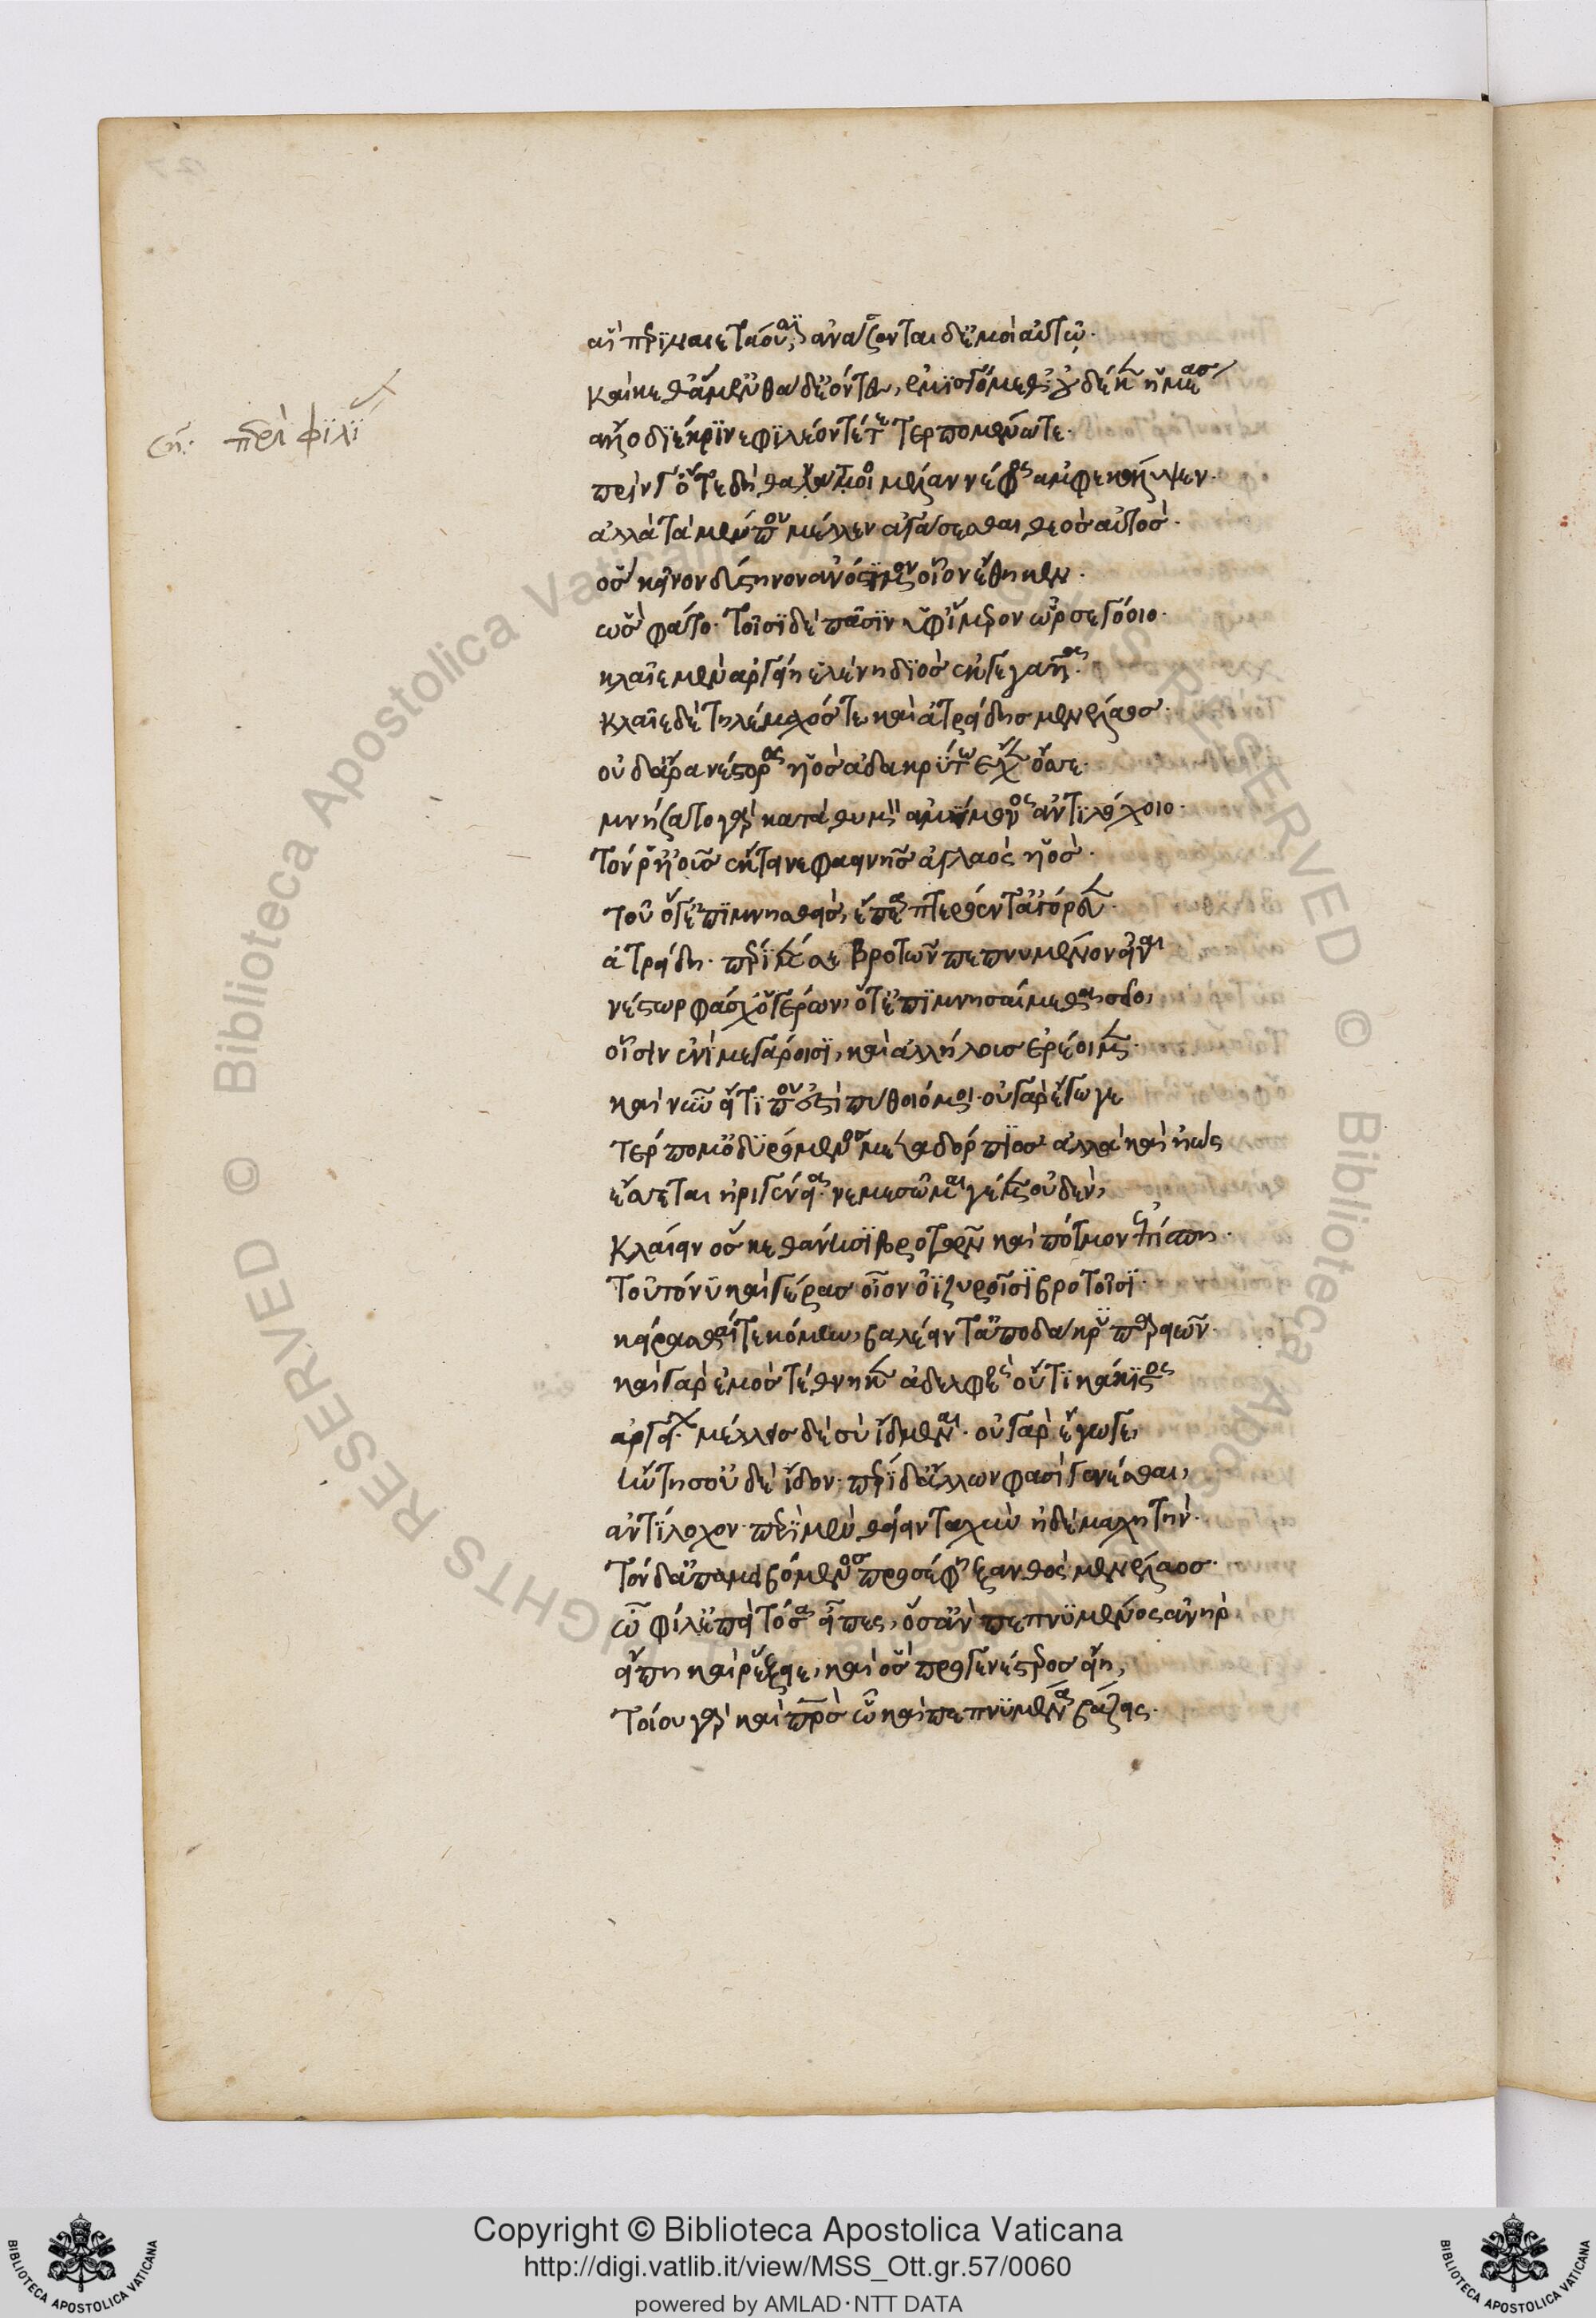 ση: περὶ φιλί
αἳ περιναιετάουσιν, ἀνάσσονται δ' ἐμοὶ αὐτῷ.
καί κε θάμ' ἐνθάδ' ἐόντες, ἐμισγόμεθ', οὐδέ κεν ἡμέασ
ἄλλο διέκρινε φιλέοντέ τε τερπομένω τε.
πρίν γ' ὅτε δὴ θανάτοιο μέλαν νέφος ἀμφεκάλυψεν.
ἀλλὰ τὰ μέν που μέλλεν ἀγάσεσθαι θεὸσ αὐτόσ.
ὃσ κεῖνον δύστηνον ἀνόστιμον οἶον ἔθηκεν.
ὣσ φάτο· τοῖσι δὲ πᾶσιν ὑφ' ἵμερον ὦρσε γόοιο.
κλαῖε μὲν ἀργείη ἑλένη διὸσ ἐκγεγαυῖα.
κλαῖε δὲ τηλέμαχόσ τε καὶ ἀτρείδησ μενέλαοσ.
οὐδ' ἄρα νέστοροσ υἱὸσ ἀδακρύτω ἔχεν ὄσσε.
μνήσατο γὰρ κατὰ θυμὸν ἀμύμονος ἀντιλόχοιο.
τόν ῥ' ἠοῦσ ἔκτεινε φαεινῆσ ἀγλαὸς υἱόσ.
τοῦ ὅγ' ἐπιμνησθεὶσ, ἔπεα πτερόεντ' ἀγόρευεν.
ἀτρείδη· περὶ μέν σε βροτῶν πεπνυμένον εἶναι
νέστωρ φάσχ' ὁ γέρων, ὅτ' ἐπιμνησαίμεθα σεῖο,
οἷσιν ἐνὶ μεγάροισι, καὶ ἀλλήλουσ ἐρέοιμεν.
καὶ νῦν εἴ τί που ἔστι πίθοιό μοι· οὐ γὰρ ἔγωγε
τέρπομ' ὀδυρόμενοσ μεταδόρπιοσ· ἀλλὰ καὶ ἠὼς
ἔσσεται ἠριγένεια· νεμεσσῶμαι γέ μεν οὐδὲν,
κλαίειν ὅσ κε θάνῃσι βροτῶν καὶ πότμον ἐπίσπῃ.
τοῦτό νυ καὶ γέρασ οἶον ὀϊζυροῖσι βροτοῖσι.
κείρασθαί τε κόμην, βαλέειν τ' ἀπὸ δάκρυ παρειῶν.
καὶ γὰρ ἐμὸσ τέθνηκεν ἀδελφεὸς οὔτι κάκιστος
ἀργείων· μέλλεισ δὲ σὺ ἴδμεναι· οὐ γὰρ ἔγωγε,
ἤντησ' οὐδὲ ἴδον· περὶ δ' ἄλλων φασὶ γενέσθαι,
ἀντίλοχον· περὶ μὲν θείειν ταχὺν ἠδὲ μαχητήν.
τὸν δ' ἀπαμειβόμενοσ προσέφη ξανθὸς μενέλαοσ.
ὦ φίλ' ἐπεὶ τόσα εἶπες, ὅσ' ἂν πεπνυμένος ἀνὴρ
εἴποι καὶ ῥέξειε, καὶ ὃσ προγενέστεροσ εἴη,
τοίου γὰρ καὶ πατρὸσ ὃ καὶ πεπνυμένα βάζεις.
Copyright © Biblioteca Apostolica Vaticana
http://digi.vatlib.it/view/MSS_Ott.gr.57/0060
powered by AMLAD·NTT DATA